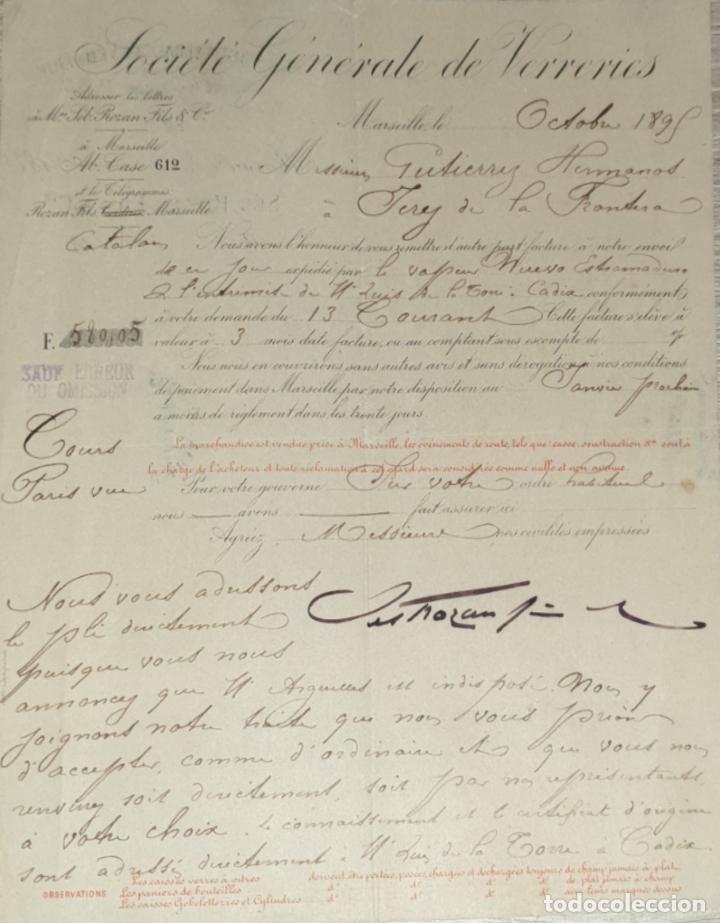 Société Générale de Verreries
Adresser les lettres
à Mrs Seb. Rozan Fils & Cie
à Marseille
Ab. Case 612
et le Télégrammes
Rozan Fils Marseille
Marseille, le Octobre 1895
Messieurs Gutierrez Hermanos
à Jerez de la Frontera
Catalan
Nous avons l'honneur de vous remettre d'autre part facture à notre envoi
de ce jour expédié par le vapeur Nuevo Estramaduro
& l'entremise de Mr Luis de la Torre Cadix conformément
à votre demande du 13 Courant Cette facture s'élève à
F. 580,05
valeur à 3 mois date facture, ou au comptant sous escompte de %
SAUF ERREUR
OU OMISSION
Nous nous en couvrirons sans autres avis et sans dérogation à nos conditions
de paiement dans Marseille par notre disposition au Janvier prochain
à moins de règlement dans les trente jours.
Cours
Paris vue
La marchandise est vendue prise à Marseille, les évènements de route, tels que casse, soustraction &a sont à
la charge de l'acheteur et toute réclamation à cet égard sera considérée comme nulle et non avenue.
Pour votre gouverne Sur votre ordre habituel
nous avons fait assurer ici
Agréez, Messieurs nos civilités empressées
Nous vous adressons
le pli directement
puisque vous nous
annoncez que Mr est indisposé. Nous y
joignons notre traite que nous vous prions
d'accepter, comme d'ordinaire et que vous nous
renverrez soit directement, soit par nos représentants,
à votre choix. Le connaissement et le certificat d'origine
sont adressés directement à Mr Luis de la Torre à Cadix
OBSERVATIONS
Les caisses verres à vitres doivent être portées, posées, chargées et déchargées toujours de champ jamais à plat.
Les paniers de bouteilles do do do do de plat jamais à champ
Les caisses Gobeletteries et Cylindres do do do do aux leurs marques dessus
todocoleccion